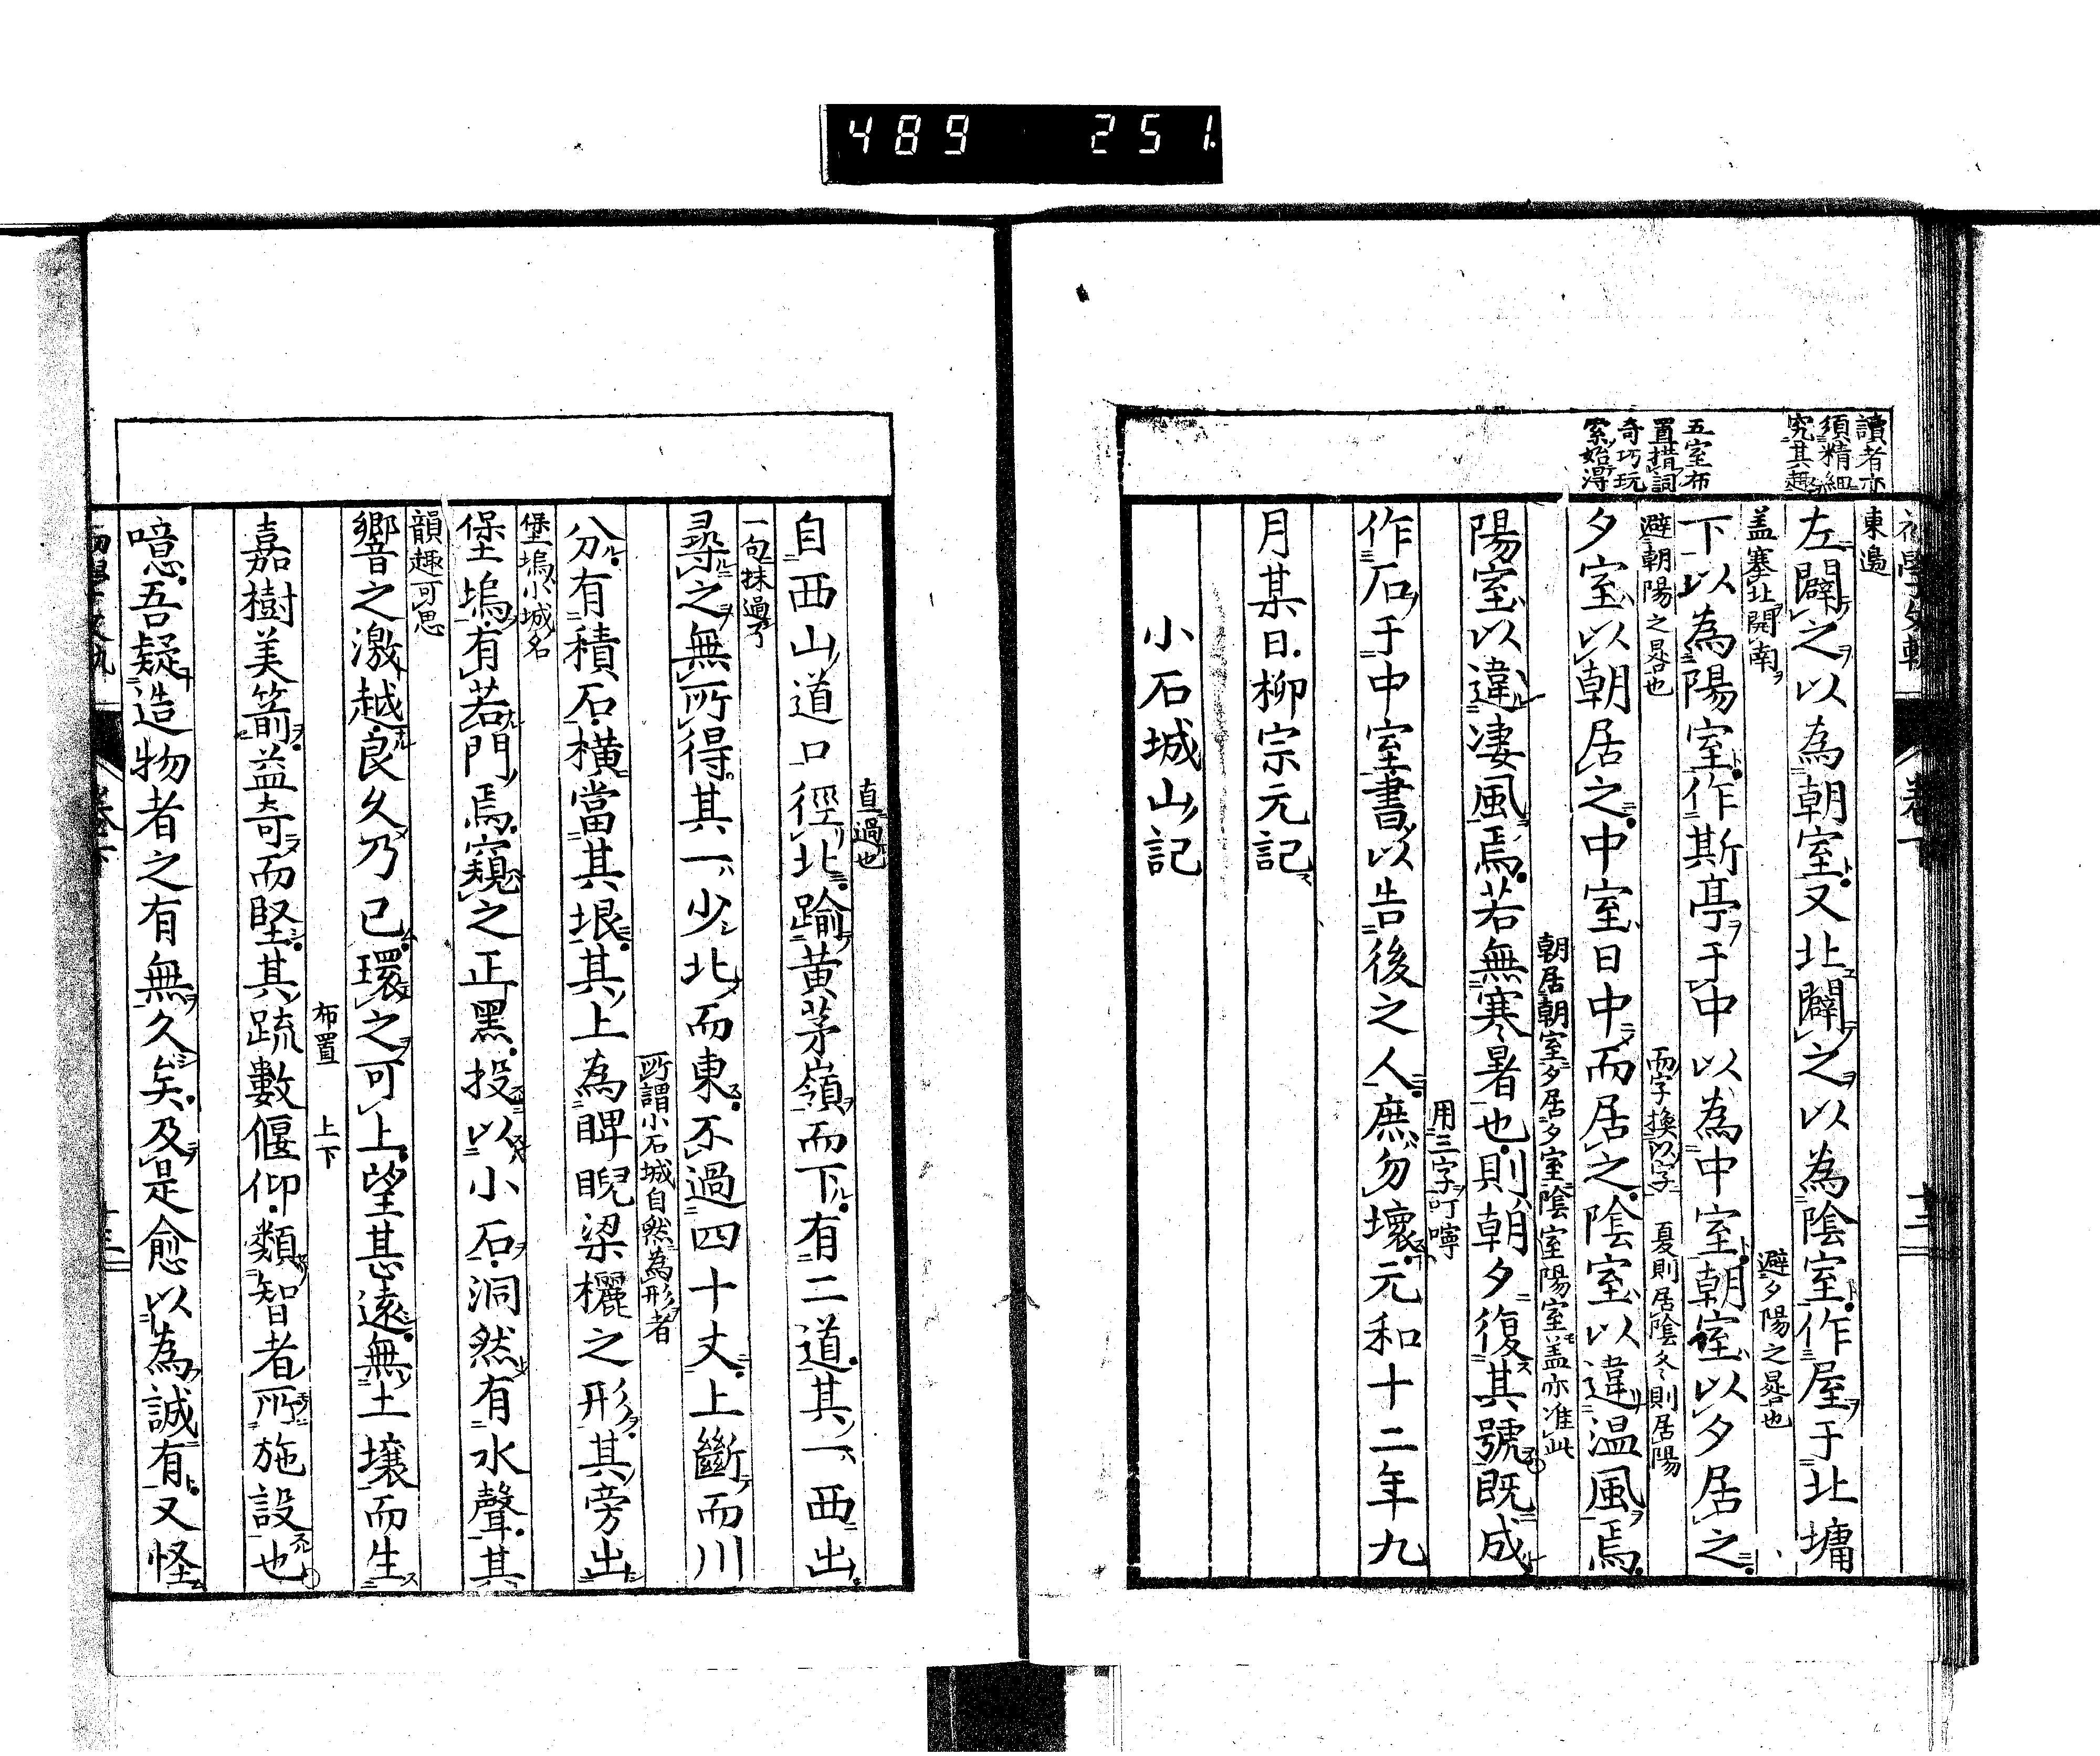 489 251
讀者亦
須精細
究其趣
五室布
置措詞
奇巧玩
索始得
東邊
左闢之以為朝室又北闢之以為陰室作屋于北墉
蓋塞北開南
避夕陽之晷也
下以為陽室作斯亭于中以為中室朝室以夕居之
避朝陽之晷也
而字換以字
夏則居陰冬則居陽
夕室以朝居之中室日中而居之陰室以違温風焉
朝居朝室夕居夕室陰室陽室蓋亦准此
陽室以違凄風焉若無寒暑也則朝夕復其號既成
用三字叮嚀
作石于中室書以告後之人庶勿壞元和十二年九
月某日柳宗元記
小石城山記
直過也
自西山道口徑北踰黄茅嶺而下有二道其一西出
一句抹過了
尋之無所得其一少北而東不過四十丈上斷而川
所謂小石城自然為形者
分有積石橫當其垠其上為睥睨梁欐之形其旁出
堡塢小城名
堡塢有若門焉窺之正黑投以小石洞然有水聲其
韻趣可思
響之激越良久乃已環之可上望甚遠無土壤而生
布置 上下
嘉樹美箭益奇而堅其疏數偃仰類智者所施設也
噫吾疑造物者之有無久矣及是愈以為誠有又怪